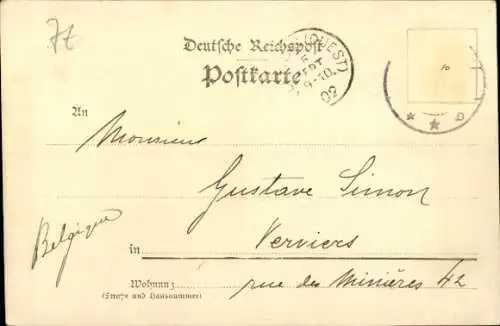 Deutsche Reichspost
Postkarte
(OUEST)
SEPT
9-10
02
An
Monsieur
Gustave Simon
Belgique
in
Verviers
Wohnung
rue des Minières 42
(Straße und Hausnummer)